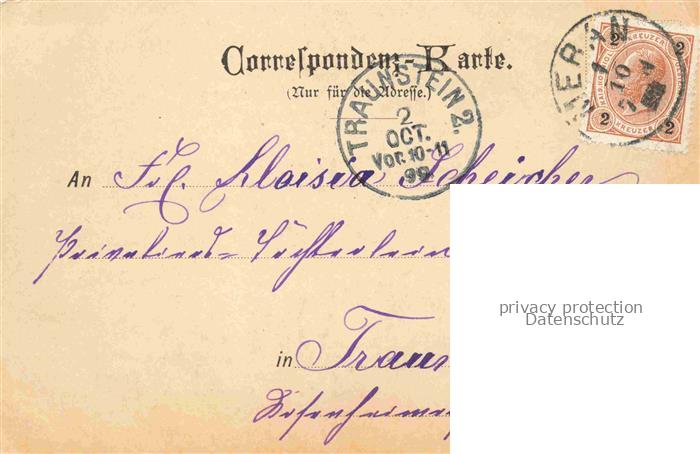 Correspondenz-Karte.
(Nur für die Adresse.)
MERAN
1
10
2 KREUZER 2
2 KREUZER 2
TRAUNSTEIN 2.
2
OCT.
Vor. 10-11
99
An Frl. Aloisia
Privatiers-Töchterlein
in Traun
privacy protection
Datenschutz